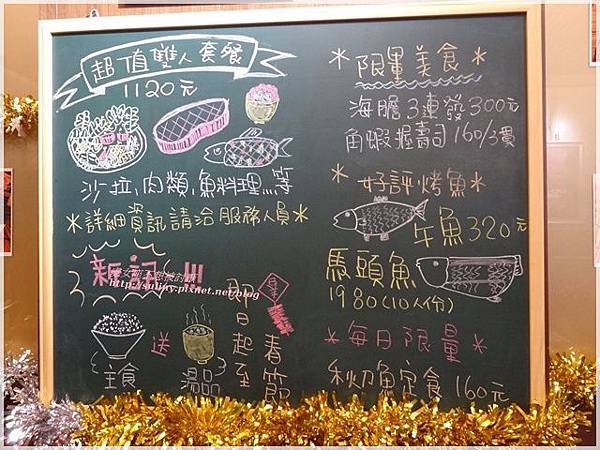 超值雙人套餐
1120元
沙拉、肉類、魚料理...等
*詳細資訊請洽服務人員*
新訊!!!
http://sulijry.pixnet.net/blog
即日起至春節
主食 送 湯品
*限量美食*
海膽3連發300元
角蝦握壽司160/3貫
*好評烤魚*
午魚320元
馬頭魚
1980(10人份)
*每日限量*
秋刀魚定食160元